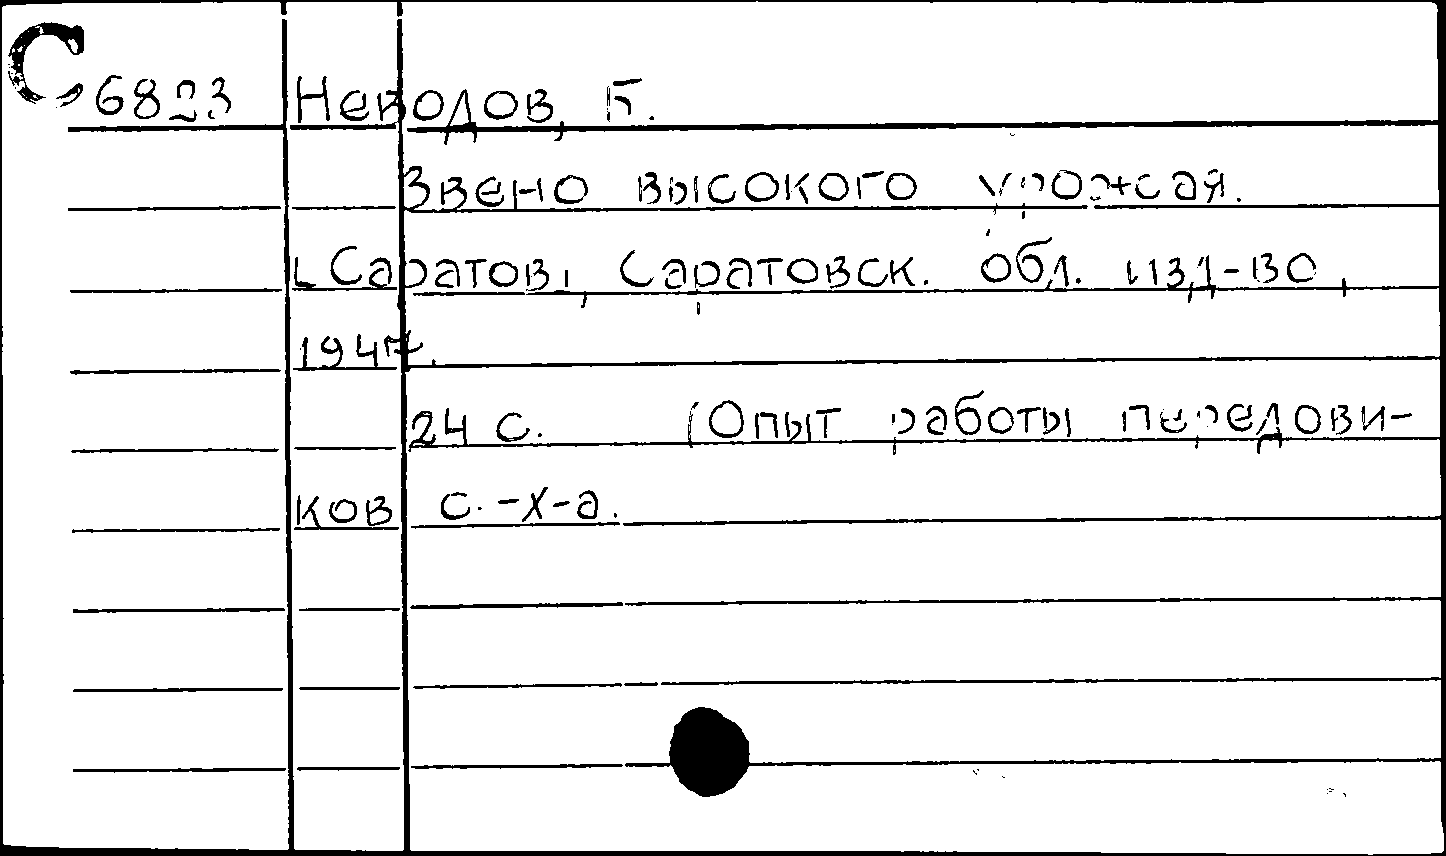 С 6823 Неводов, Б.
Звено высокого урожая.
[Саратов], Саратовск. обл. изд-во,
1947.
24 с. (Опыт работы передови-
ков с.-х-а.